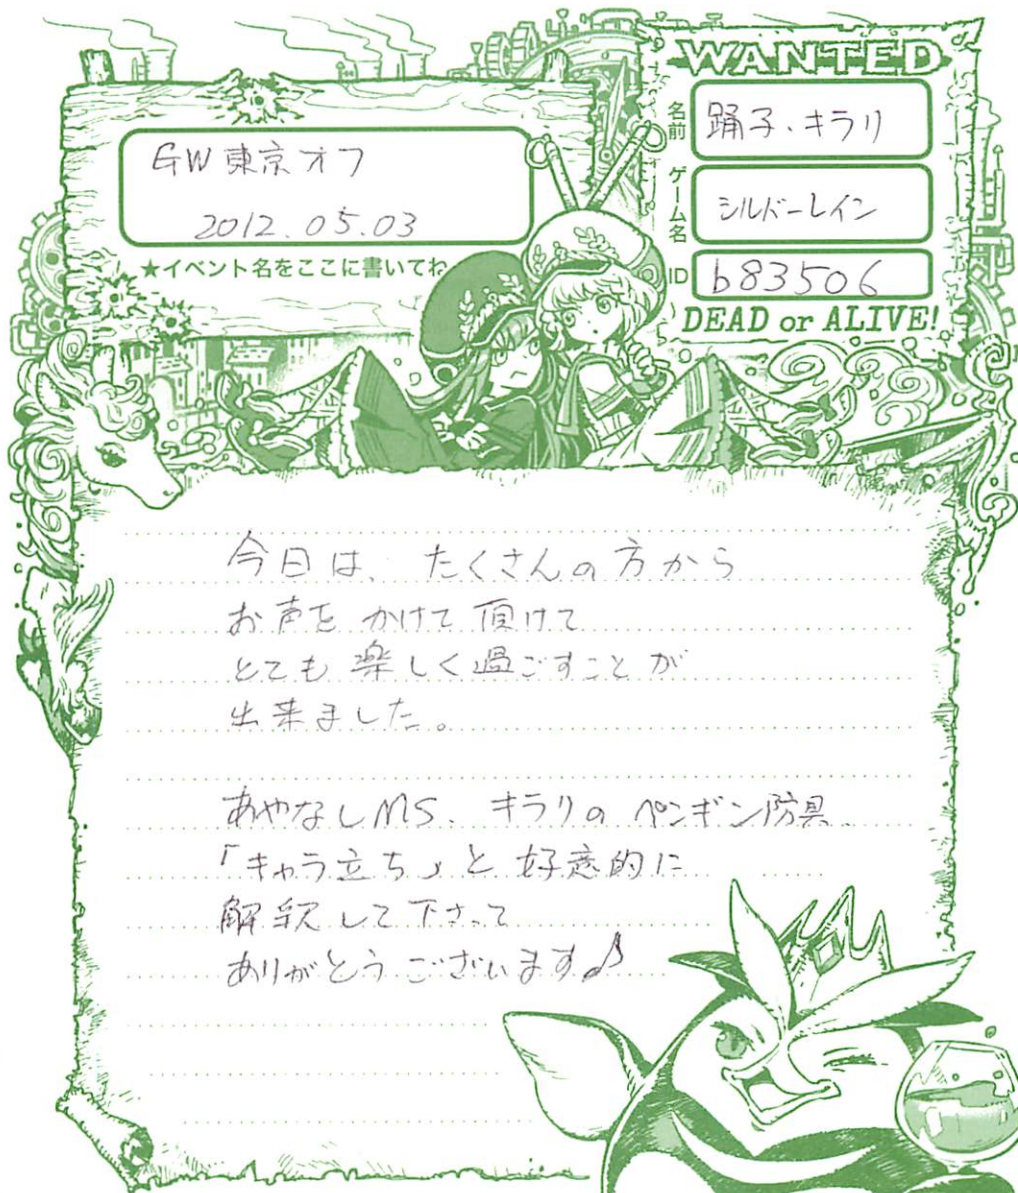 GW東京オフ
2012.05.03
★イベント名をここに書いてね
WANTED
名前
踊子・キラリ
ゲーム名
シルバーレイン
ID
b83506
DEAD or ALIVE!
今日は、たくさんの方から
お声をかけて頂けて
とても楽しく過ごすことが
出来ました。
あやなしMS、キラリのペンギン防具
「キャラ立ち」と好意的に
解釈して下さって
ありがとうございます♪